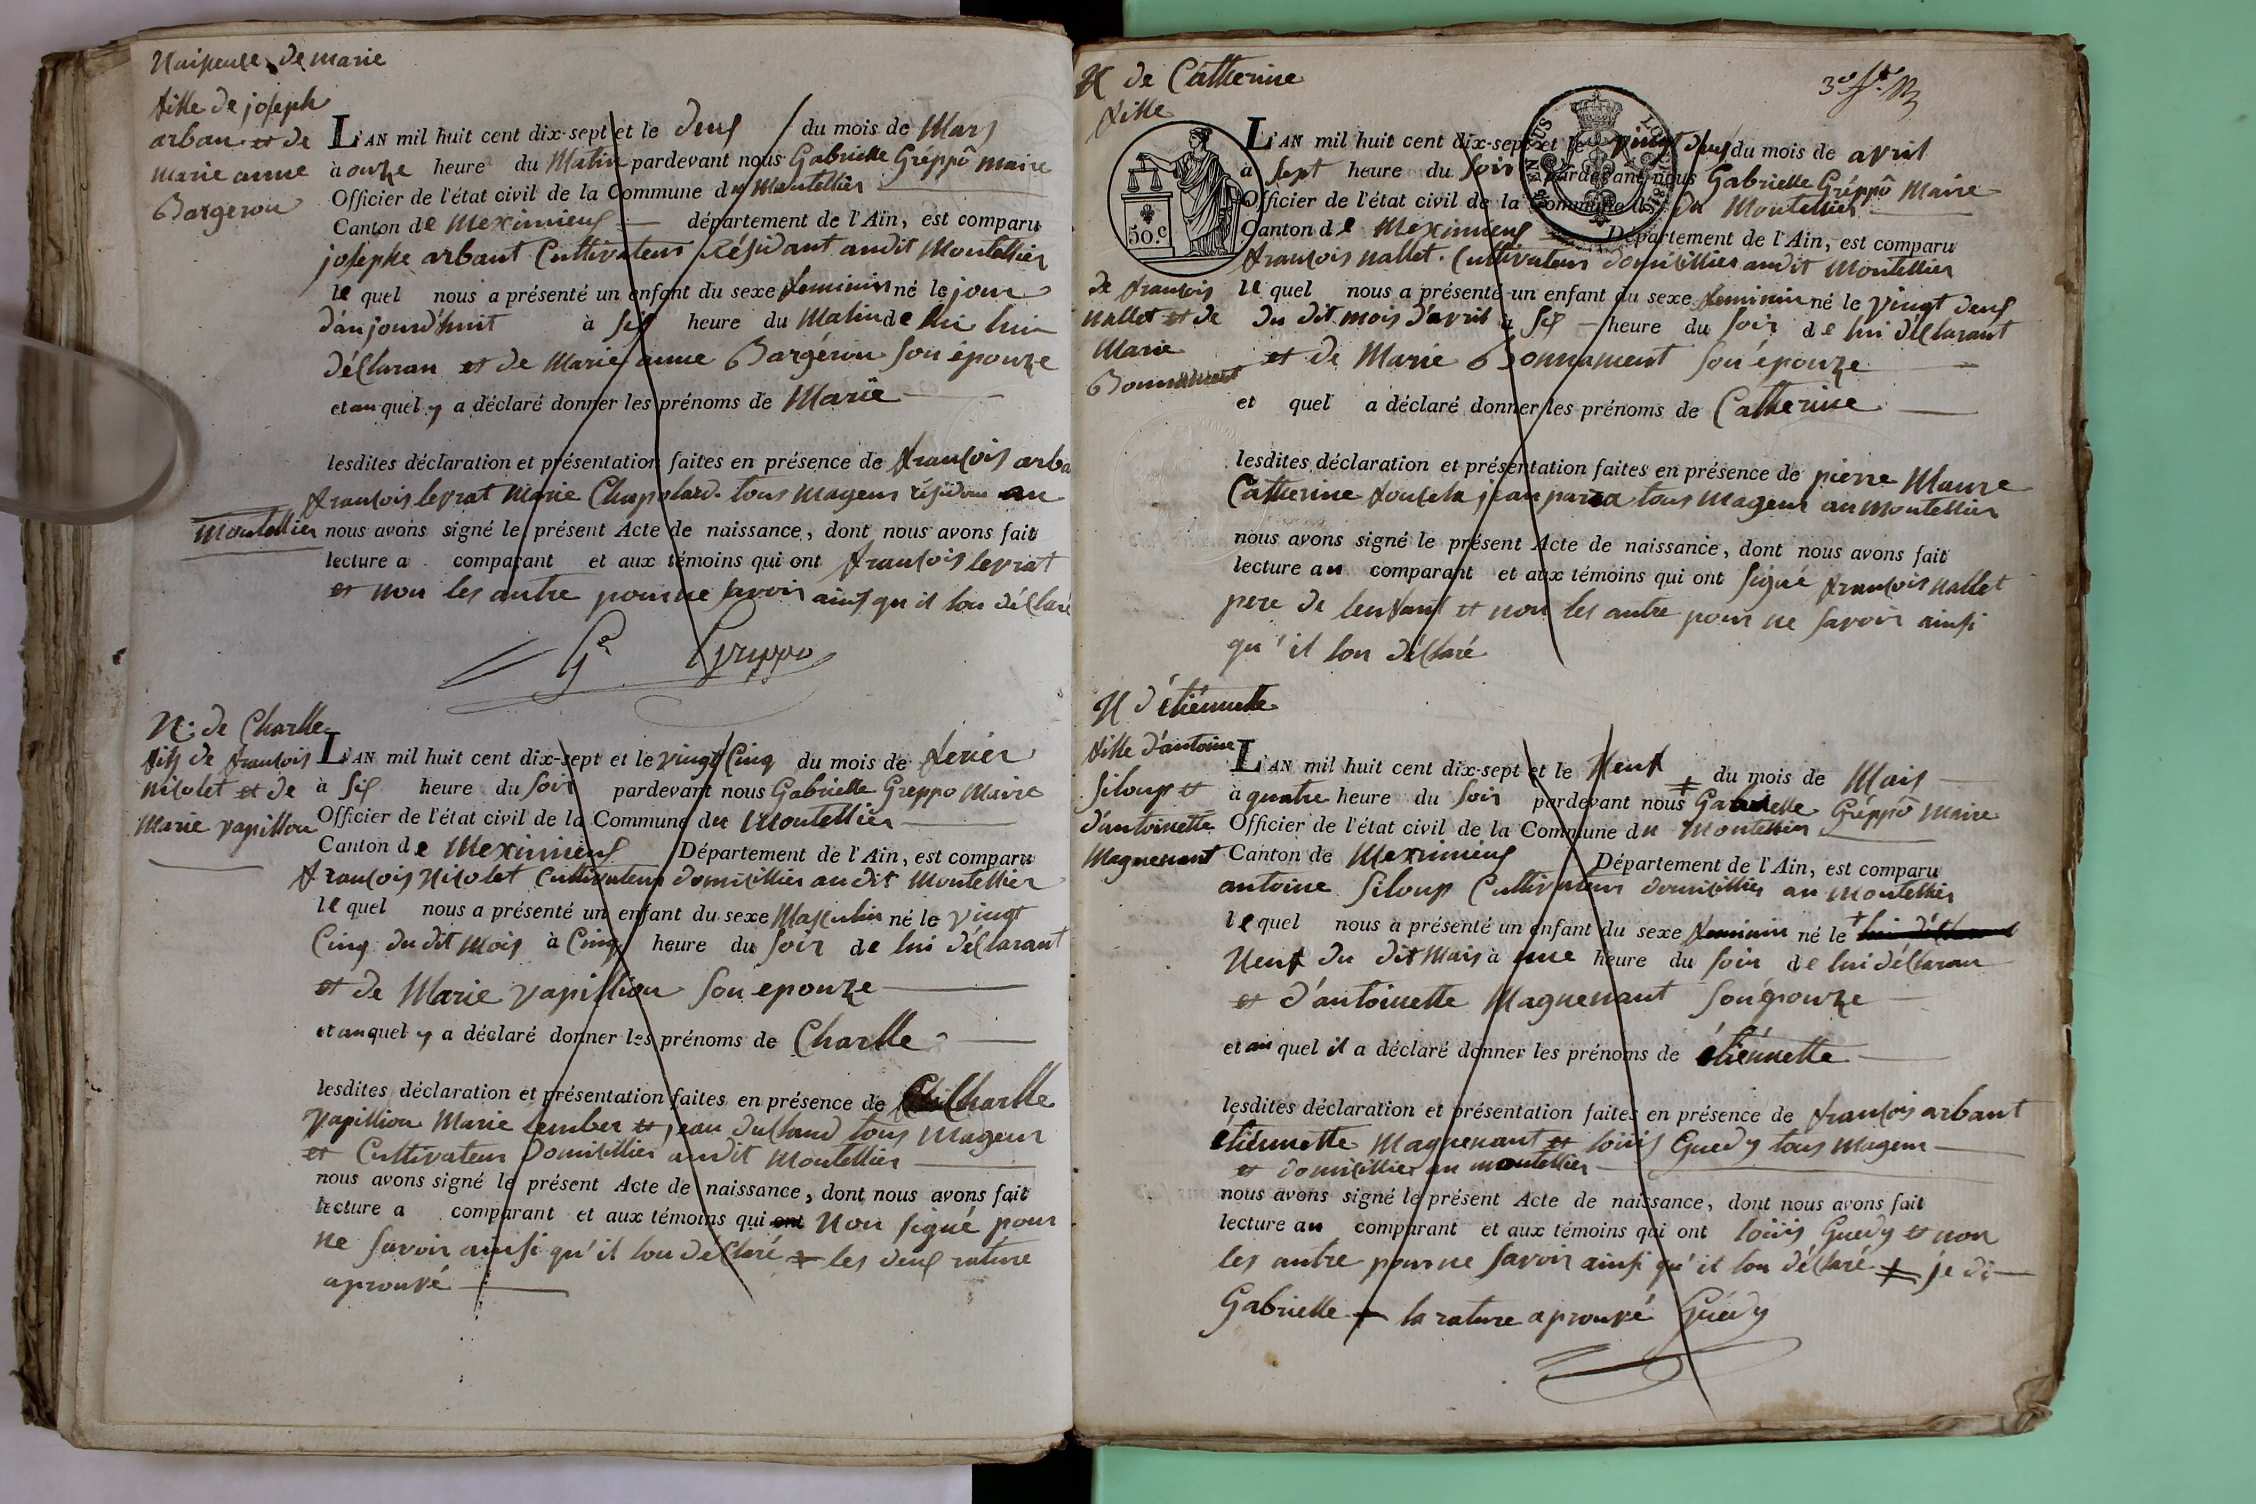 Naissance de marie
fille de joseph
arban et de
marie anne
Bargeron
L'AN mil huit cent dix-sept et le deux du mois de Mars
à onze heure du Matin pardevant nous Gabrielle Gréppô maire
Officier de l'état civil de la Commune du Montellier
Canton de Meximieux département de l'Ain, est comparu
josephe arbant Cultivateur résidant audit Montellier
le quel nous a présenté un enfant du sexe feminin né le jour
d'aujourd'huit à six heure du Matin de lui
déclaran et de Marie anne Bargéron son épouze
et au quel y a déclaré donner les prénoms de Marie
lesdites déclaration et présentation faites en présence de françois arba
françois leprat Marie Chapolard tous mageur résidan au
Montellier nous avons signé le présent Acte de naissance, dont nous avons fait
lecture a comparant et aux témoins qui ont françois leprat
et non les autre pour ne savoir ainsi qu'il lon déclaré
Gr Greppo
N. de Charlle
fils de françois
nicolet et de
Marie papillon
L'AN mil huit cent dix-sept et le vingt Cinq du mois de fevier
à six heure du soir pardevant nous Gabrielle Greppo Maire
Officier de l'état civil de la Commune du Montellier
Canton de Meximieux Département de l'Ain, est comparu
françois Nicolet Cultivateur domicillier audit Montellier
le quel nous a présenté un enfant du sexe Masculin né le vingt
Cinq du dit mois à Cinq heure du soir de lui déclarant
et de Marie papillion son epouze
et au quel y a déclaré donner les prénoms de Charlle
lesdites déclaration et présentation faites en présence de Charlle
papillion Marie lember et jean duclaud tous Mageur
et Cultivateur Domicillier audit Montellier
nous avons signé le présent Acte de naissance, dont nous avons fait
lecture a comparant et aux témoins qui ont Non signé pour
ne savoir ainsi qu'il lon déclaré les deux rature
aprouvé
N de Catherine
fille
de françois
nallet et de
Marie
Bonnament
3e ft.
50.c
L'AN mil huit cent dix-sept et le vingt deux du mois de avril
à sept heure du soir pardevant nous Gabrielle Gréppô Maire
Officier de l'état civil de la Commune du Montellier
Canton de Meximieux Département de l'Ain, est comparu
françois nallet Cultivateur domicillier audit Montellier
le quel nous a présenté un enfant du sexe feminin né le vingt deux
du dit mois d'avril à six heure du soir de lui déclarant
et de Marie Bonnament son épouze
et quel a déclaré donner les prénoms de Catherine
lesdites déclaration et présentation faites en présence de pierre Maure
Catherine jean tous mageur au Montellier
nous avons signé le présent Acte de naissance, dont nous avons fait
lecture au comparant et aux témoins qui ont signé françois nallet
pere de lenfant et non les autre pour ne savoir ainsi
qu'il lon déclaré
N d'étiénnette
fille d'antoine
siloup et
d'antoinette
Maguenant
L'AN mil huit cent dix-sept et le Neuf du mois de Mais
à quatre heure du soir pardevant nous Gabrielle Gréppô Maire
Officier de l'état civil de la Commune du Montellier
Canton de Meximieux Département de l'Ain, est comparu
antoine siloup Cultivateur domicillier au montellier
le quel nous a présenté un enfant du sexe feminin né le
Neuf du dit Mais à une heure du soir de lui déclaran
et d'antoinette Maguenant son épouze
et au quel il a déclaré donner les prénoms de étiénnette
lesdites déclaration et présentation faites en présence de françois arbant
étiénnette Maguenant et loüis Guedy tous mageur
et domicillier au montellier
nous avons signé le présent Acte de naissance, dont nous avons fait
lecture au comparant et aux témoins qui ont loüis Guedy et non
les autre pour ne savoir ainsi qu'il lon déclaré je di
Gabrielle la rature aprouvé Guedy